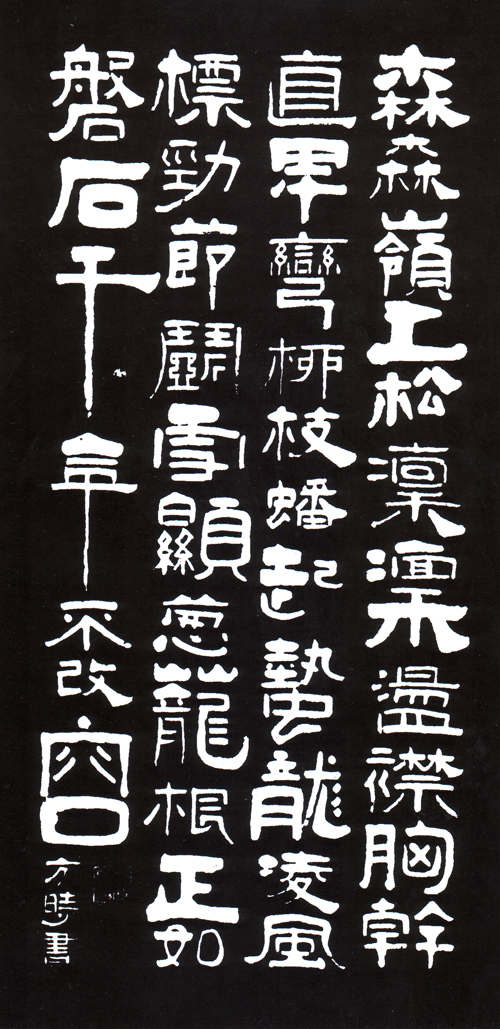 森森嶺上松凜凜盪襟胸幹
直卑彎柳枝蟠起蟄龍凌風
標勁節鬭雪顯蔥蘢根正如
磐石千年不改容
方時書